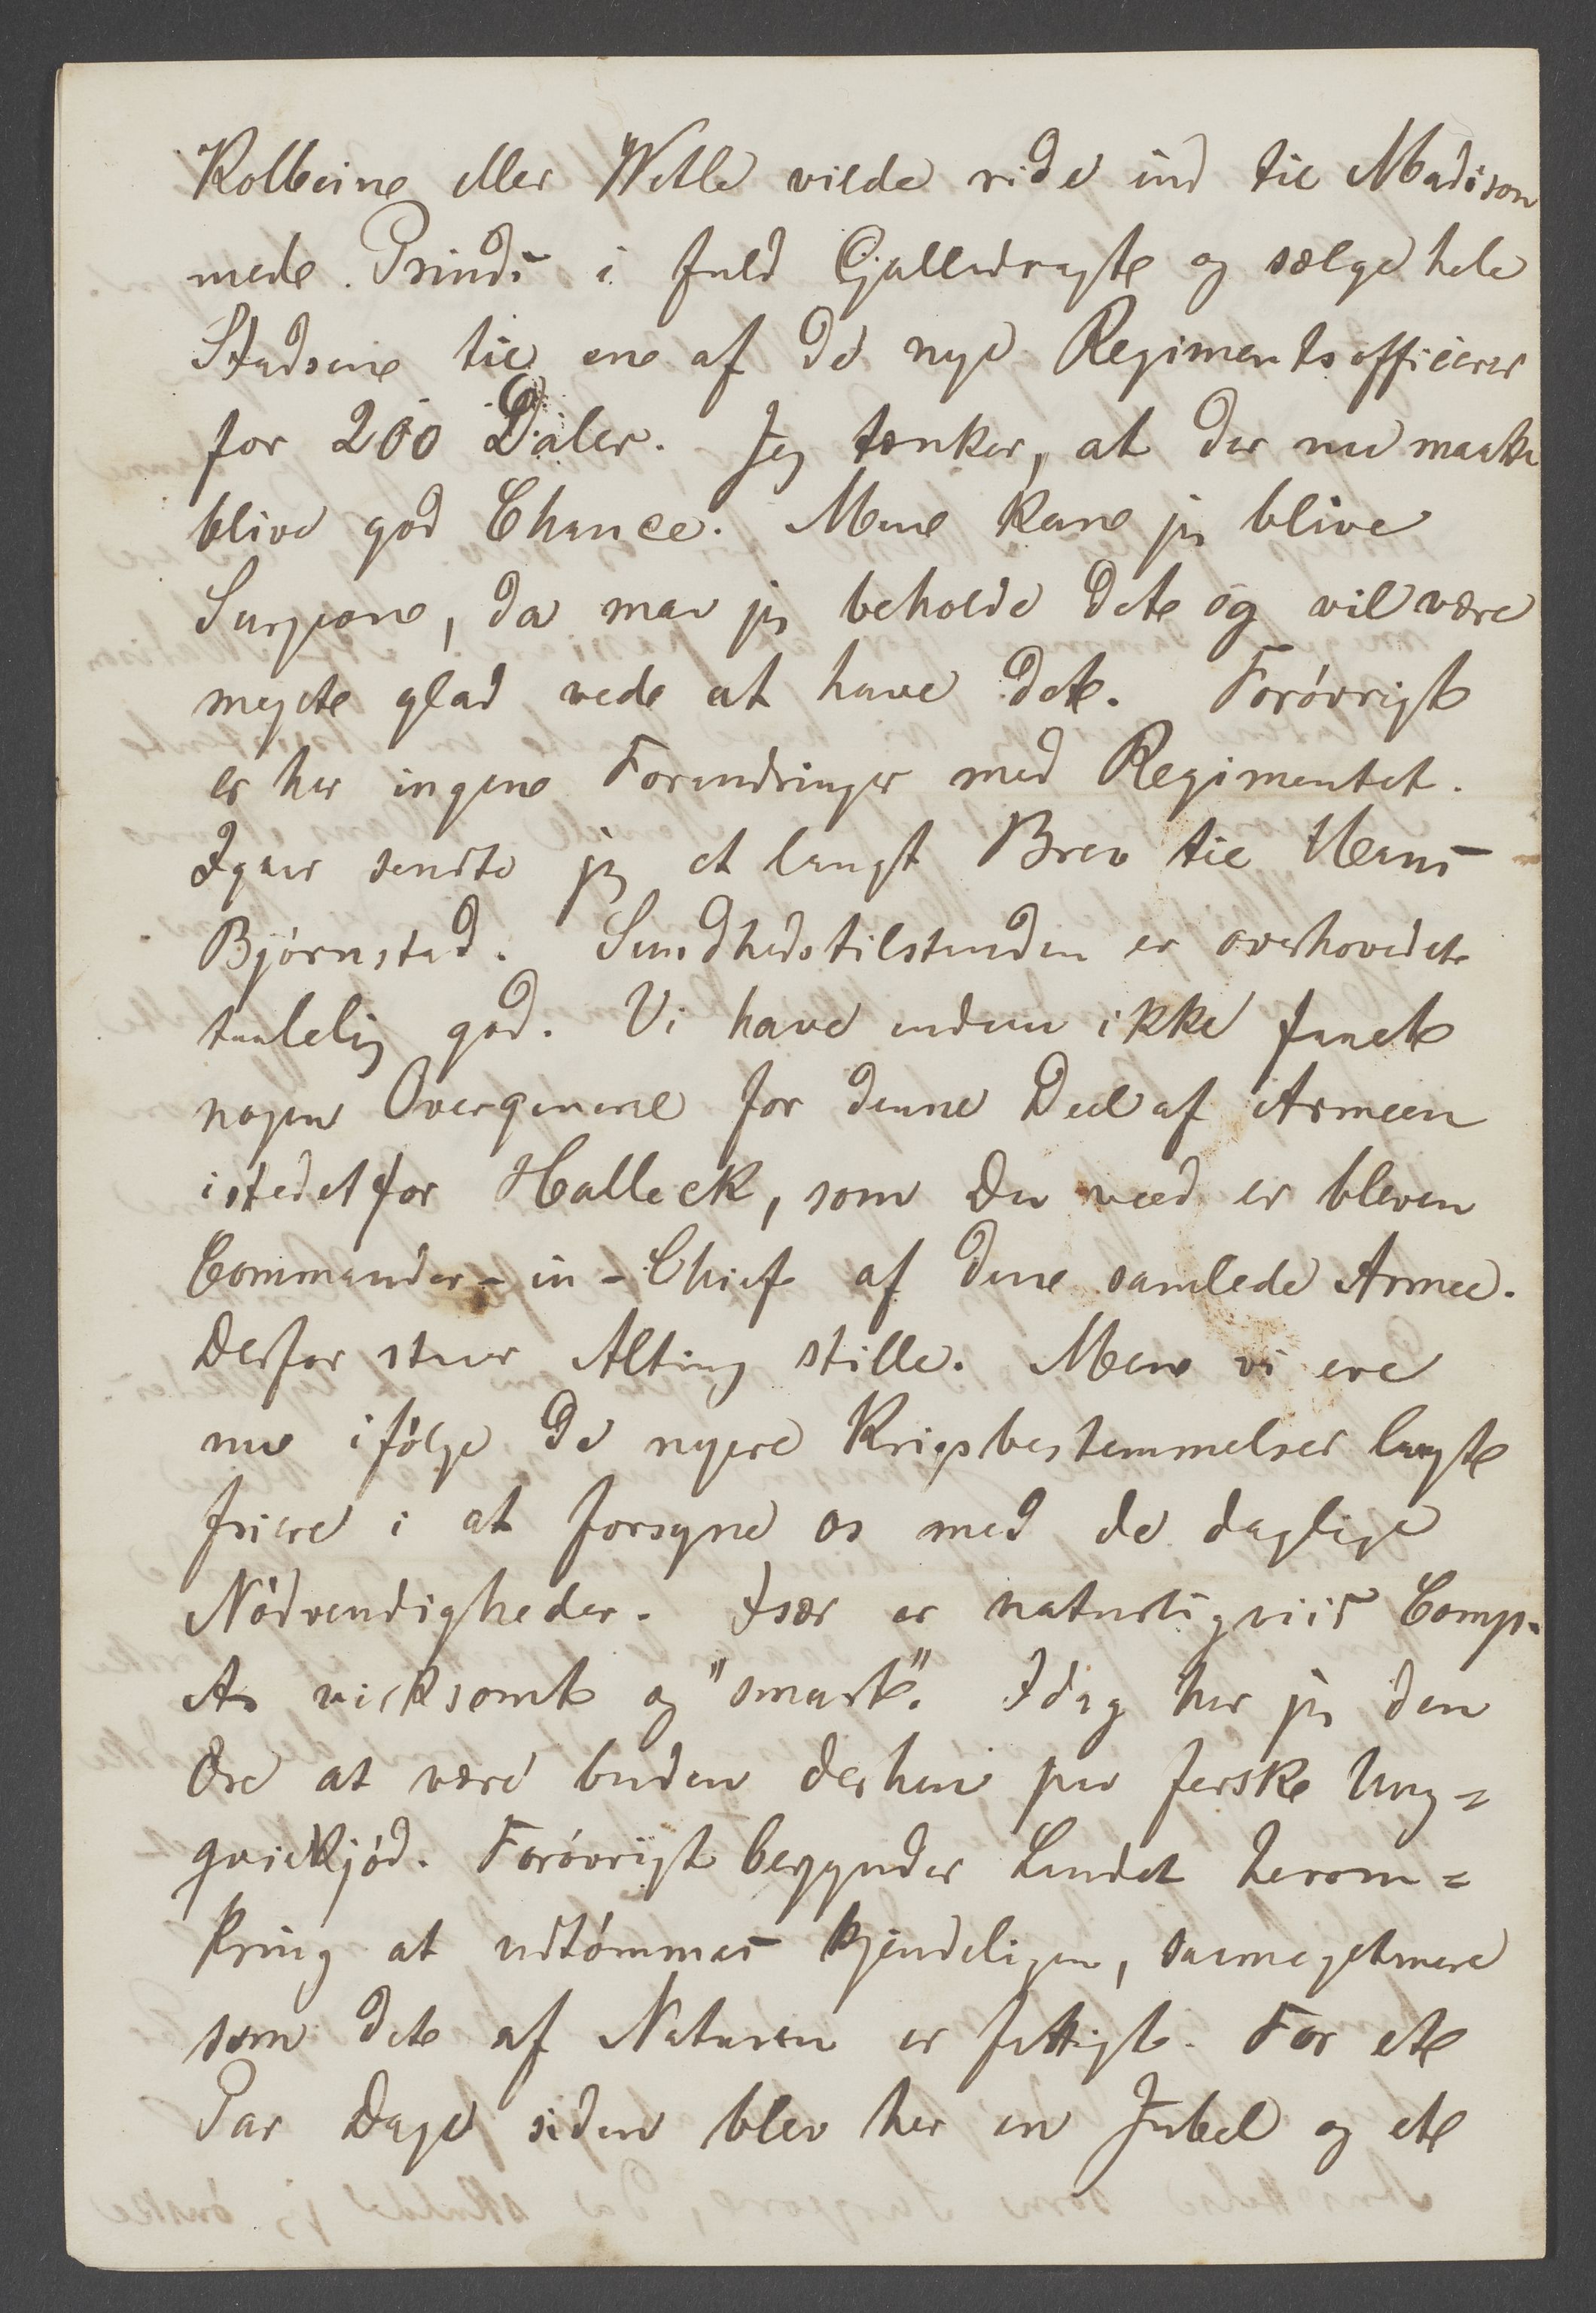 Kolbein eller Wetle vilde ride ind til Madison
med Prinds i fuld Galladragt og sælge hele
Stadsen til en af de nye Regimentsofficerer
for 200 Daler. Jeg tænker, at der nu maatte
blive god Chance. Men kan jeg blive
Surgeon, da maa jeg beholde det og vil være
meget glad ved at have det. Forøvrigt
er her ingen Forandringer med Regimentet.
Igaar sendte jeg et langt Brev til Hans
Bjørnstad. Sundhedstilstanden er overhovedet
taalelig god. Vi have endnu ikke faaet
nogen Overgeneral for denne Deel af Armeen
istedetfor Halleck, som Du veed er bleven
Commander-in-Chief af den samlede Armee.
Derfor staar Alting stille. Men vi ere
nu ifølge de nyere Krigsbestemmelser langt
friere i at forsyne os med de daglige
Nødvendigheder. Især er naturligviis Comp.
A. virksomt og "smart". Idag har jeg den
Ære at være buden derhen paa fersk Ung=
qvækjød. Forøvrigt begynder Landet herom=
kring at udtømmes kjendeligen, saameget mere
som det af Naturen er fattigt. For et
Par Dage siden blev her en Jubel og et